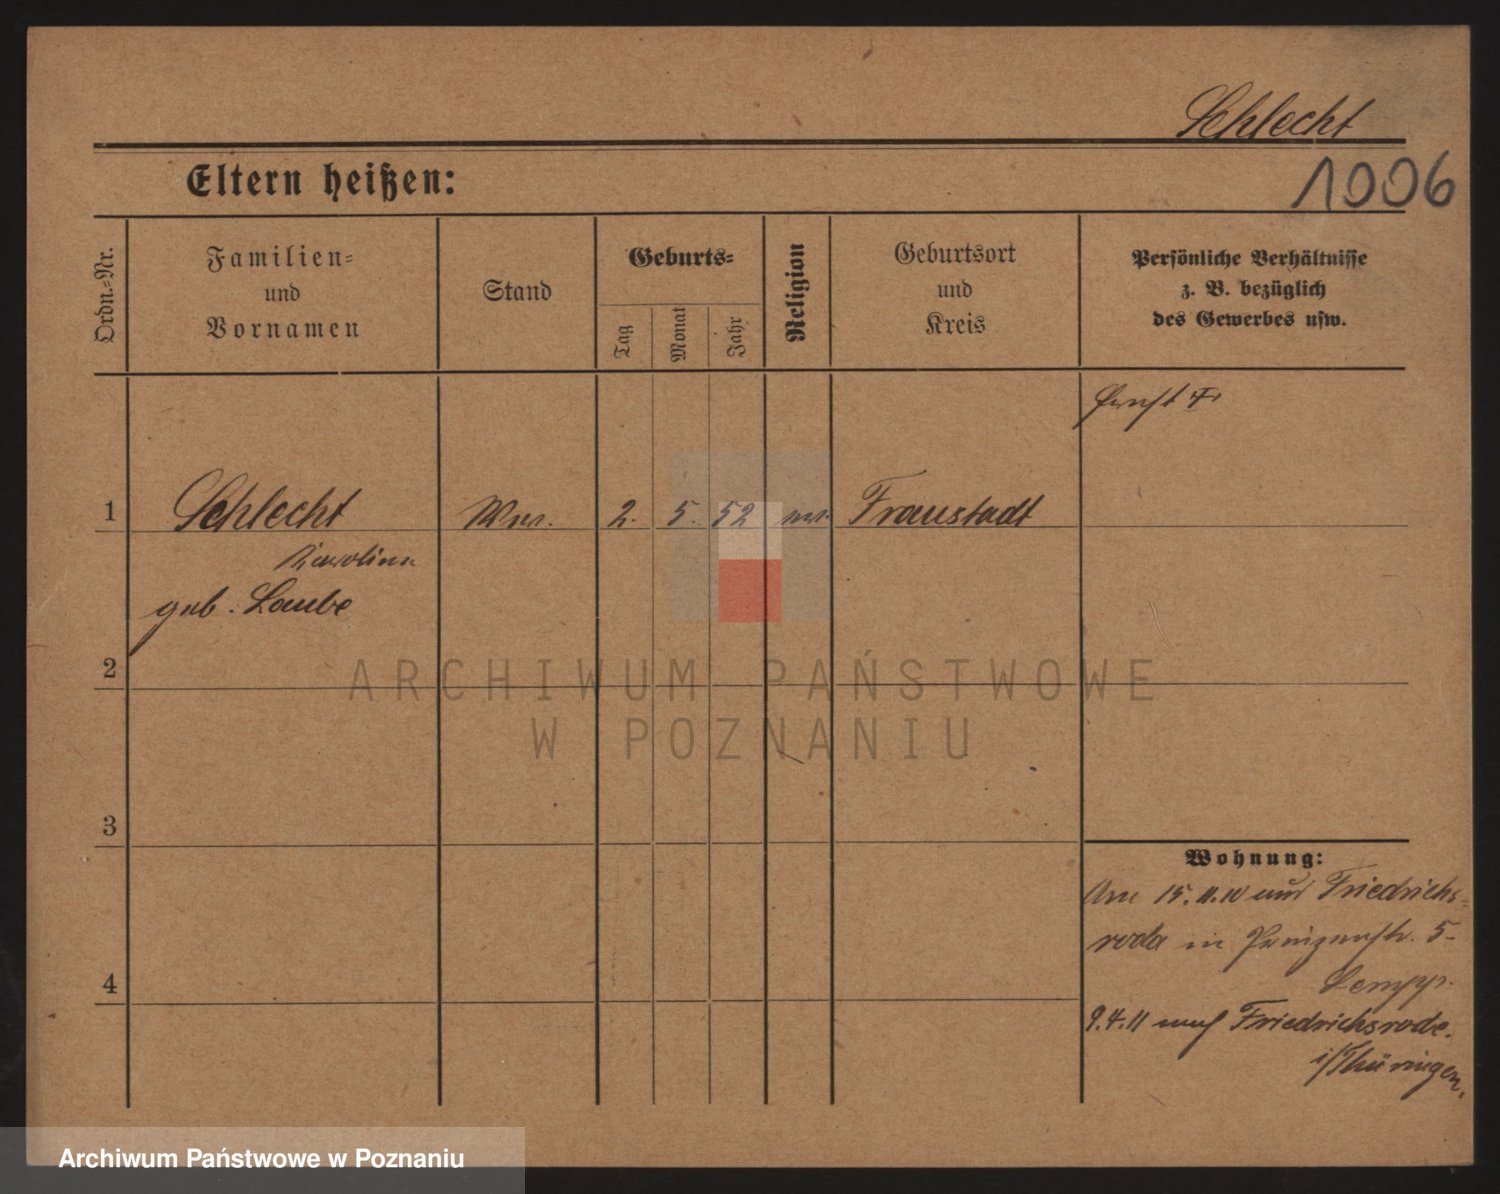 Schlecht
Eltern heißen:
1006
Ordn.-Nr.
Familien-
und
Vornamen
Stand
Geburts-
Tag
Monat
Jahr
Religion
Geburtsort
und
Kreis
Persönliche Verhältnisse
z. B. bezüglich
des Gewerbes usw.
1
Schlecht
Ww.
2.
5.
52
Fraustadt
geb. Laube
2
ARCHIWUM PAŃSTWOWE
W POZNANIU
3
4
Wohnung:
15.11.10 Friedrichs-
roda in Prinzenstr. 5
9.4.11 nach Friedrichsrode.
i/Thüringen.
Archiwum Państwowe w Poznaniu